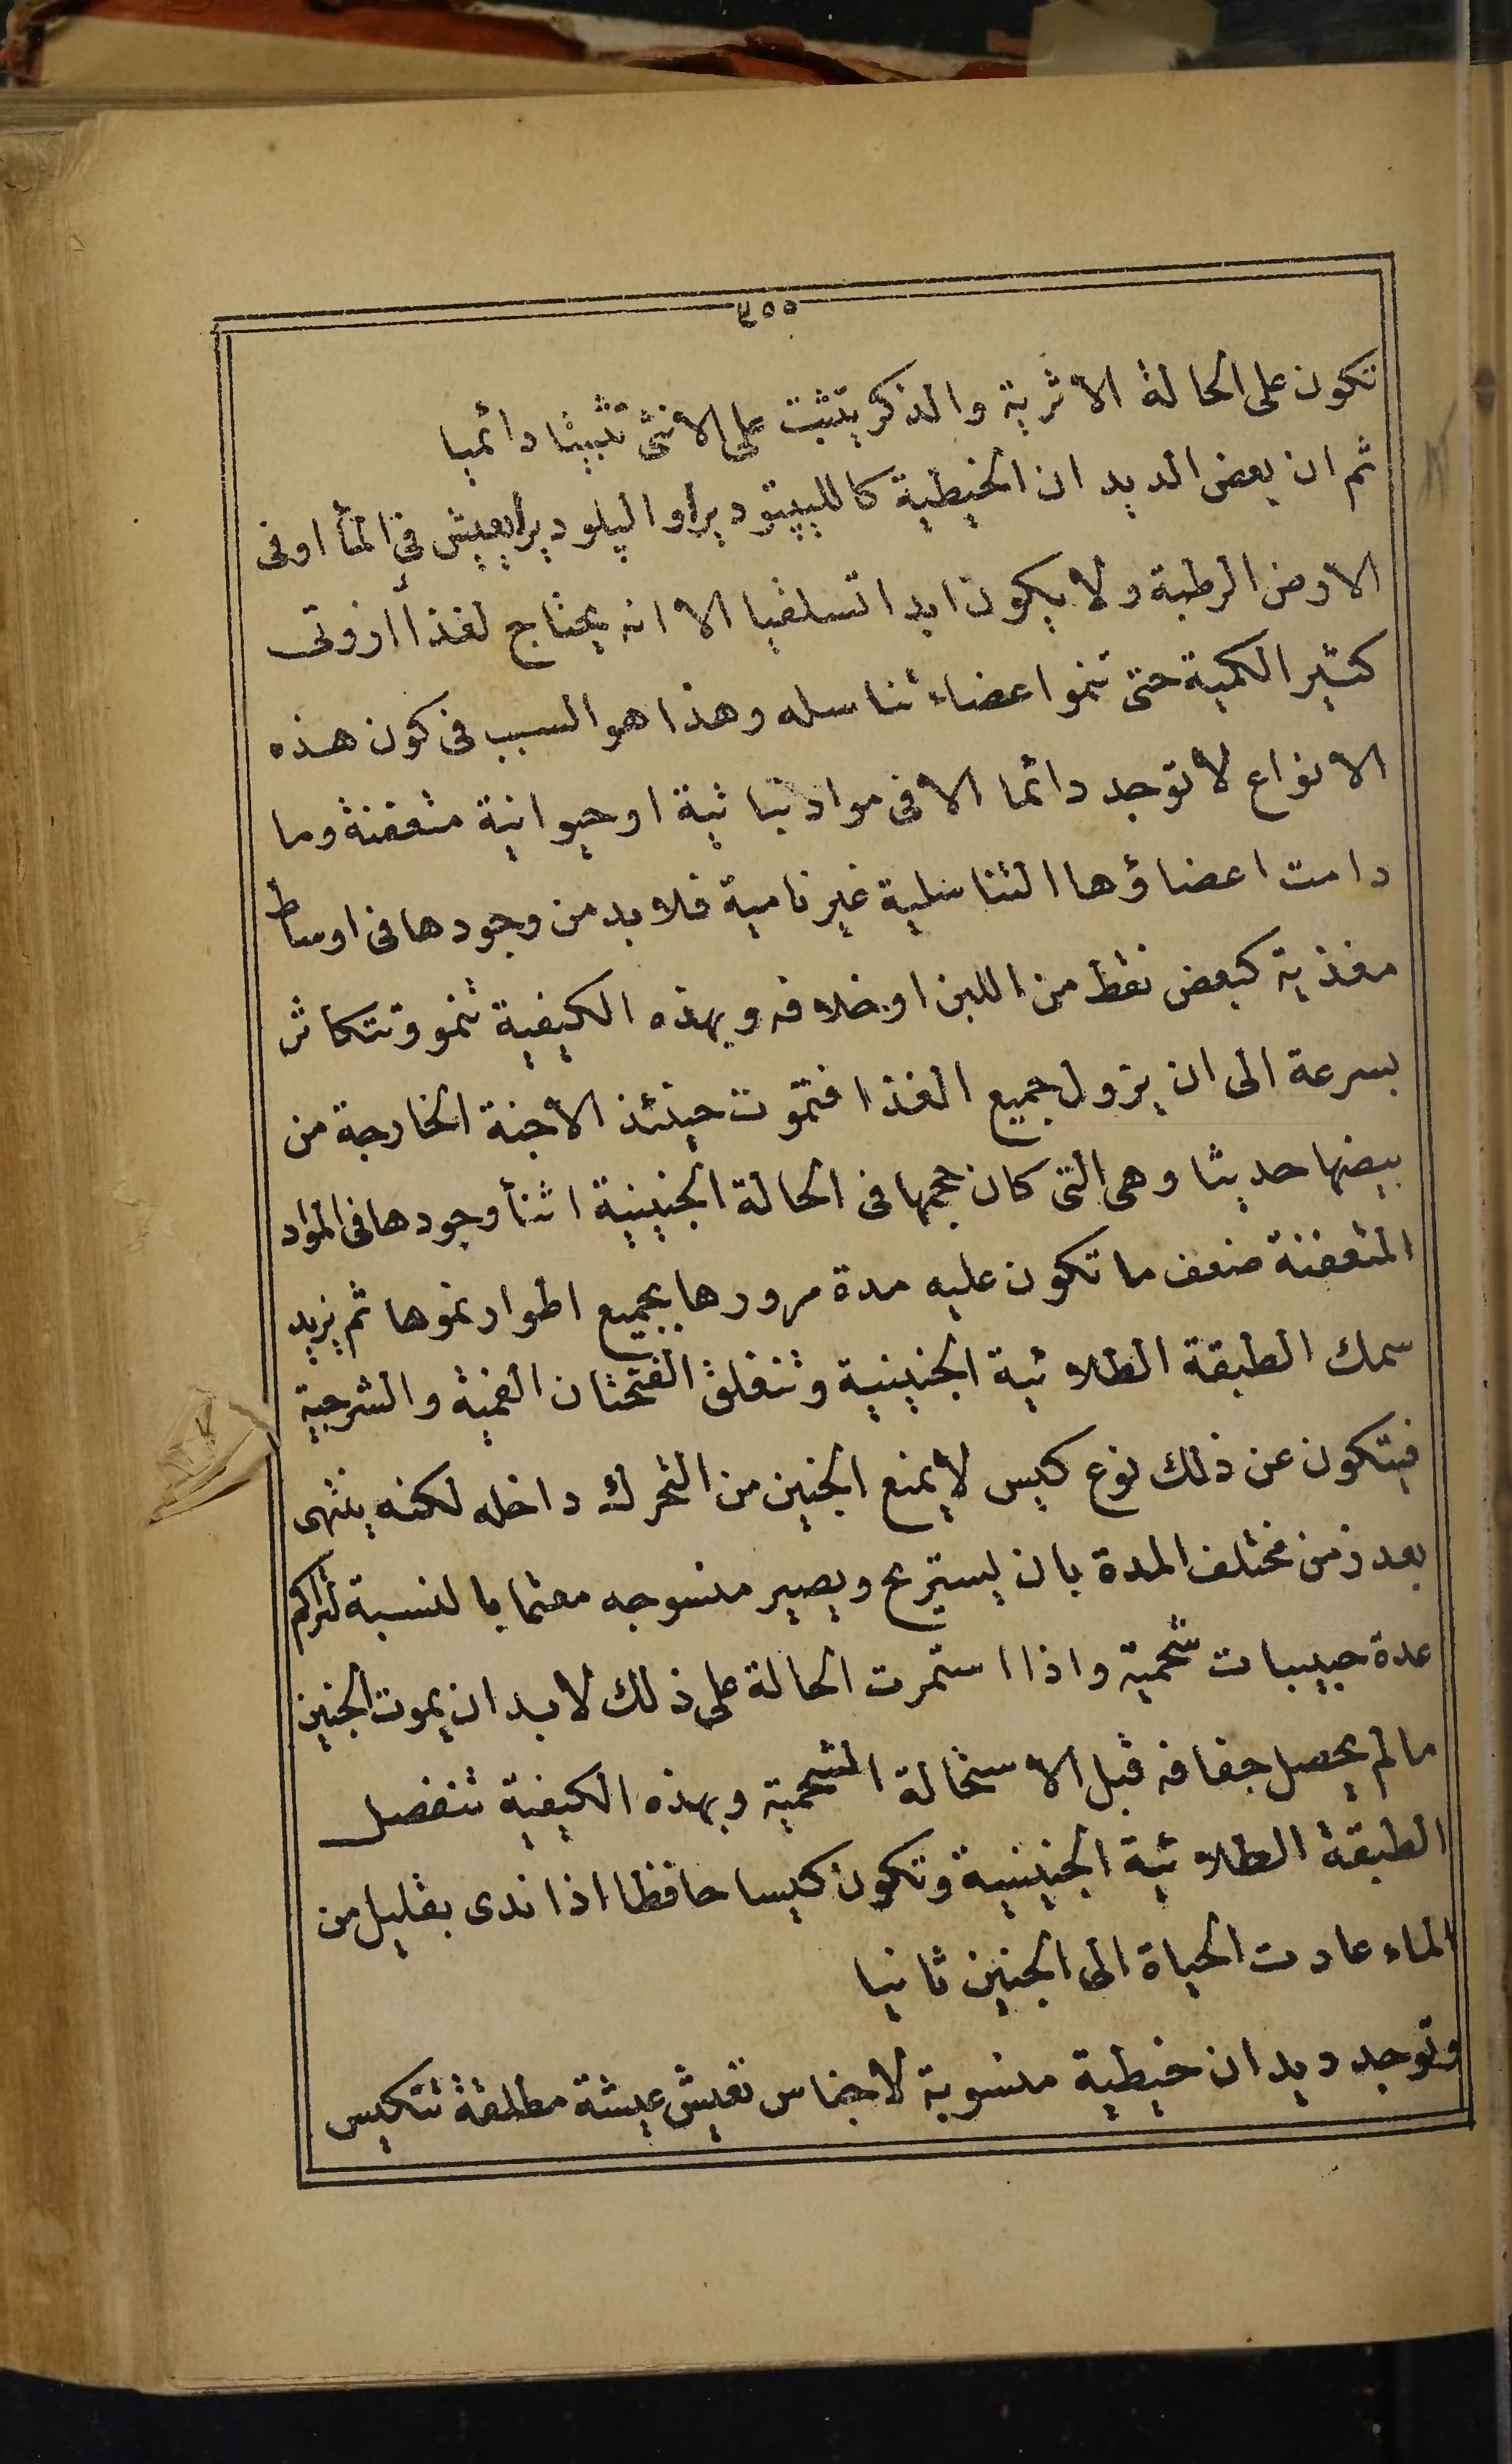 ٤٥٥
تكون على الحالة الاثرية والذكر يتثبت على الانثى تثبيتا دائميا
ثم ان بعض الديدان الخيطية كاللبيتوديرا والپلوديرا يعيش فى المأ او فى
الارض الرطبة ولا يكون ابدا تسلقيا الا انه يحتاج لغذأ ازوتى
كثير الكمية حتى تنمو اعضاء تناسله وهذا هو السبب فى كون هذه
الانواع لا توجد دائما الا فى مواد نباتية او حيوانية متعفنة وما
دامت اعضاؤها التناسلية غير نامية فلا بد من وجودها فى اوساط
مغذية كبعض نقط من اللبن او خلافه وبهذه الكيفية تنمو وتتكاثر
بسرعة الى ان يزول جميع الغذا فتموت حينئذ الاجنة الخارجة من
بيضها حديثا وهى التى كان حجمها فى الحالة الجنينية اثنأ وجودها فى المواد
المتعفنة ضعف ما تكون عليه مدة مرورها بجميع اطوار نموها ثم يزيد
سمك الطبقة الطلائية الجنينية وتنغلق الفتحتان الفمية والشرجية
فيتكون عن ذلك نوع كيس لا يمنع الجنين من التحرك داخله لكنه ينتهى
بعد زمن مختلف المدة بان يستريح ويصير منسوجه معتما بالنسبة لتراكم
عدة حبيبات شحمية واذا استمرت الحالة على ذلك لا بد ان يموت الجنين
مالم يحصل جفافه قبل الاستحالة الشحمية وبهذه الكيفية تنفصل
الطبقة الطلائية الجنينية وتكون كيسا حافظا اذا ندى بقليل من
الماء عادت الحياة الى الجنين ثانيا
وتوجد ديدان خيطية منسوبة لاجناس تعيش عيشة مطلقة تتكيس